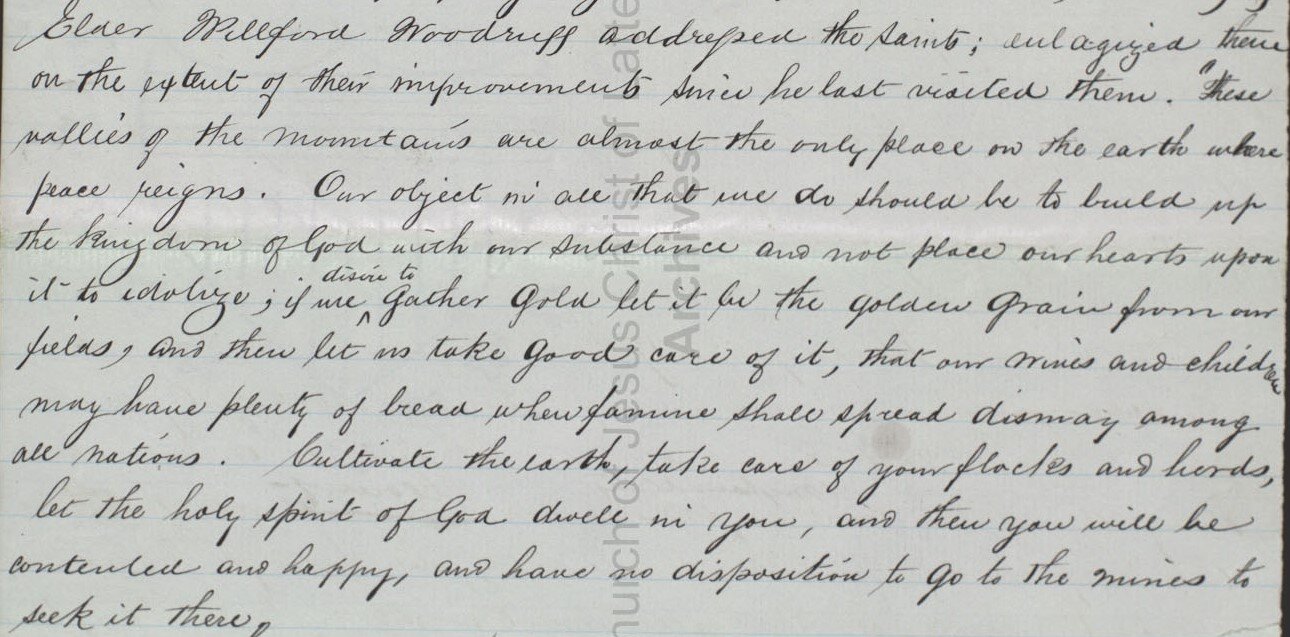 Elder Willford Woodruff addressed the saints; eulagized them
on the extent of their improvements since he last visited them. "These
vallies of the mountains are almost the only place on the earth where
peace reigns. Our object in all that we do should be to build up
the kingdom of God with our substance and not place our hearts upon
it to idolize; if we desire to gather gold let it be the golden grain from our
fields, and then let us take good care of it, that our wives and children
may have plenty of bread when famine shall spread dismay among
all nations. Cultivate the earth, take care of your flocks and herds,
let the holy spirit of God dwell in you, and then you will be
contented and happy, and have no disposition to go to the mines to
seek it there,
Church of Jesus Christ of Late
Archives